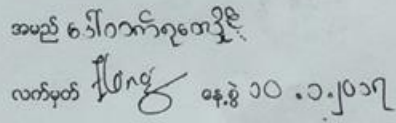 အမည် ဒေါ်ဝက်ရတေဒိုင့်
လက်မှတ် နေ့စွဲ ၁၀.၁.၂၀၁၇